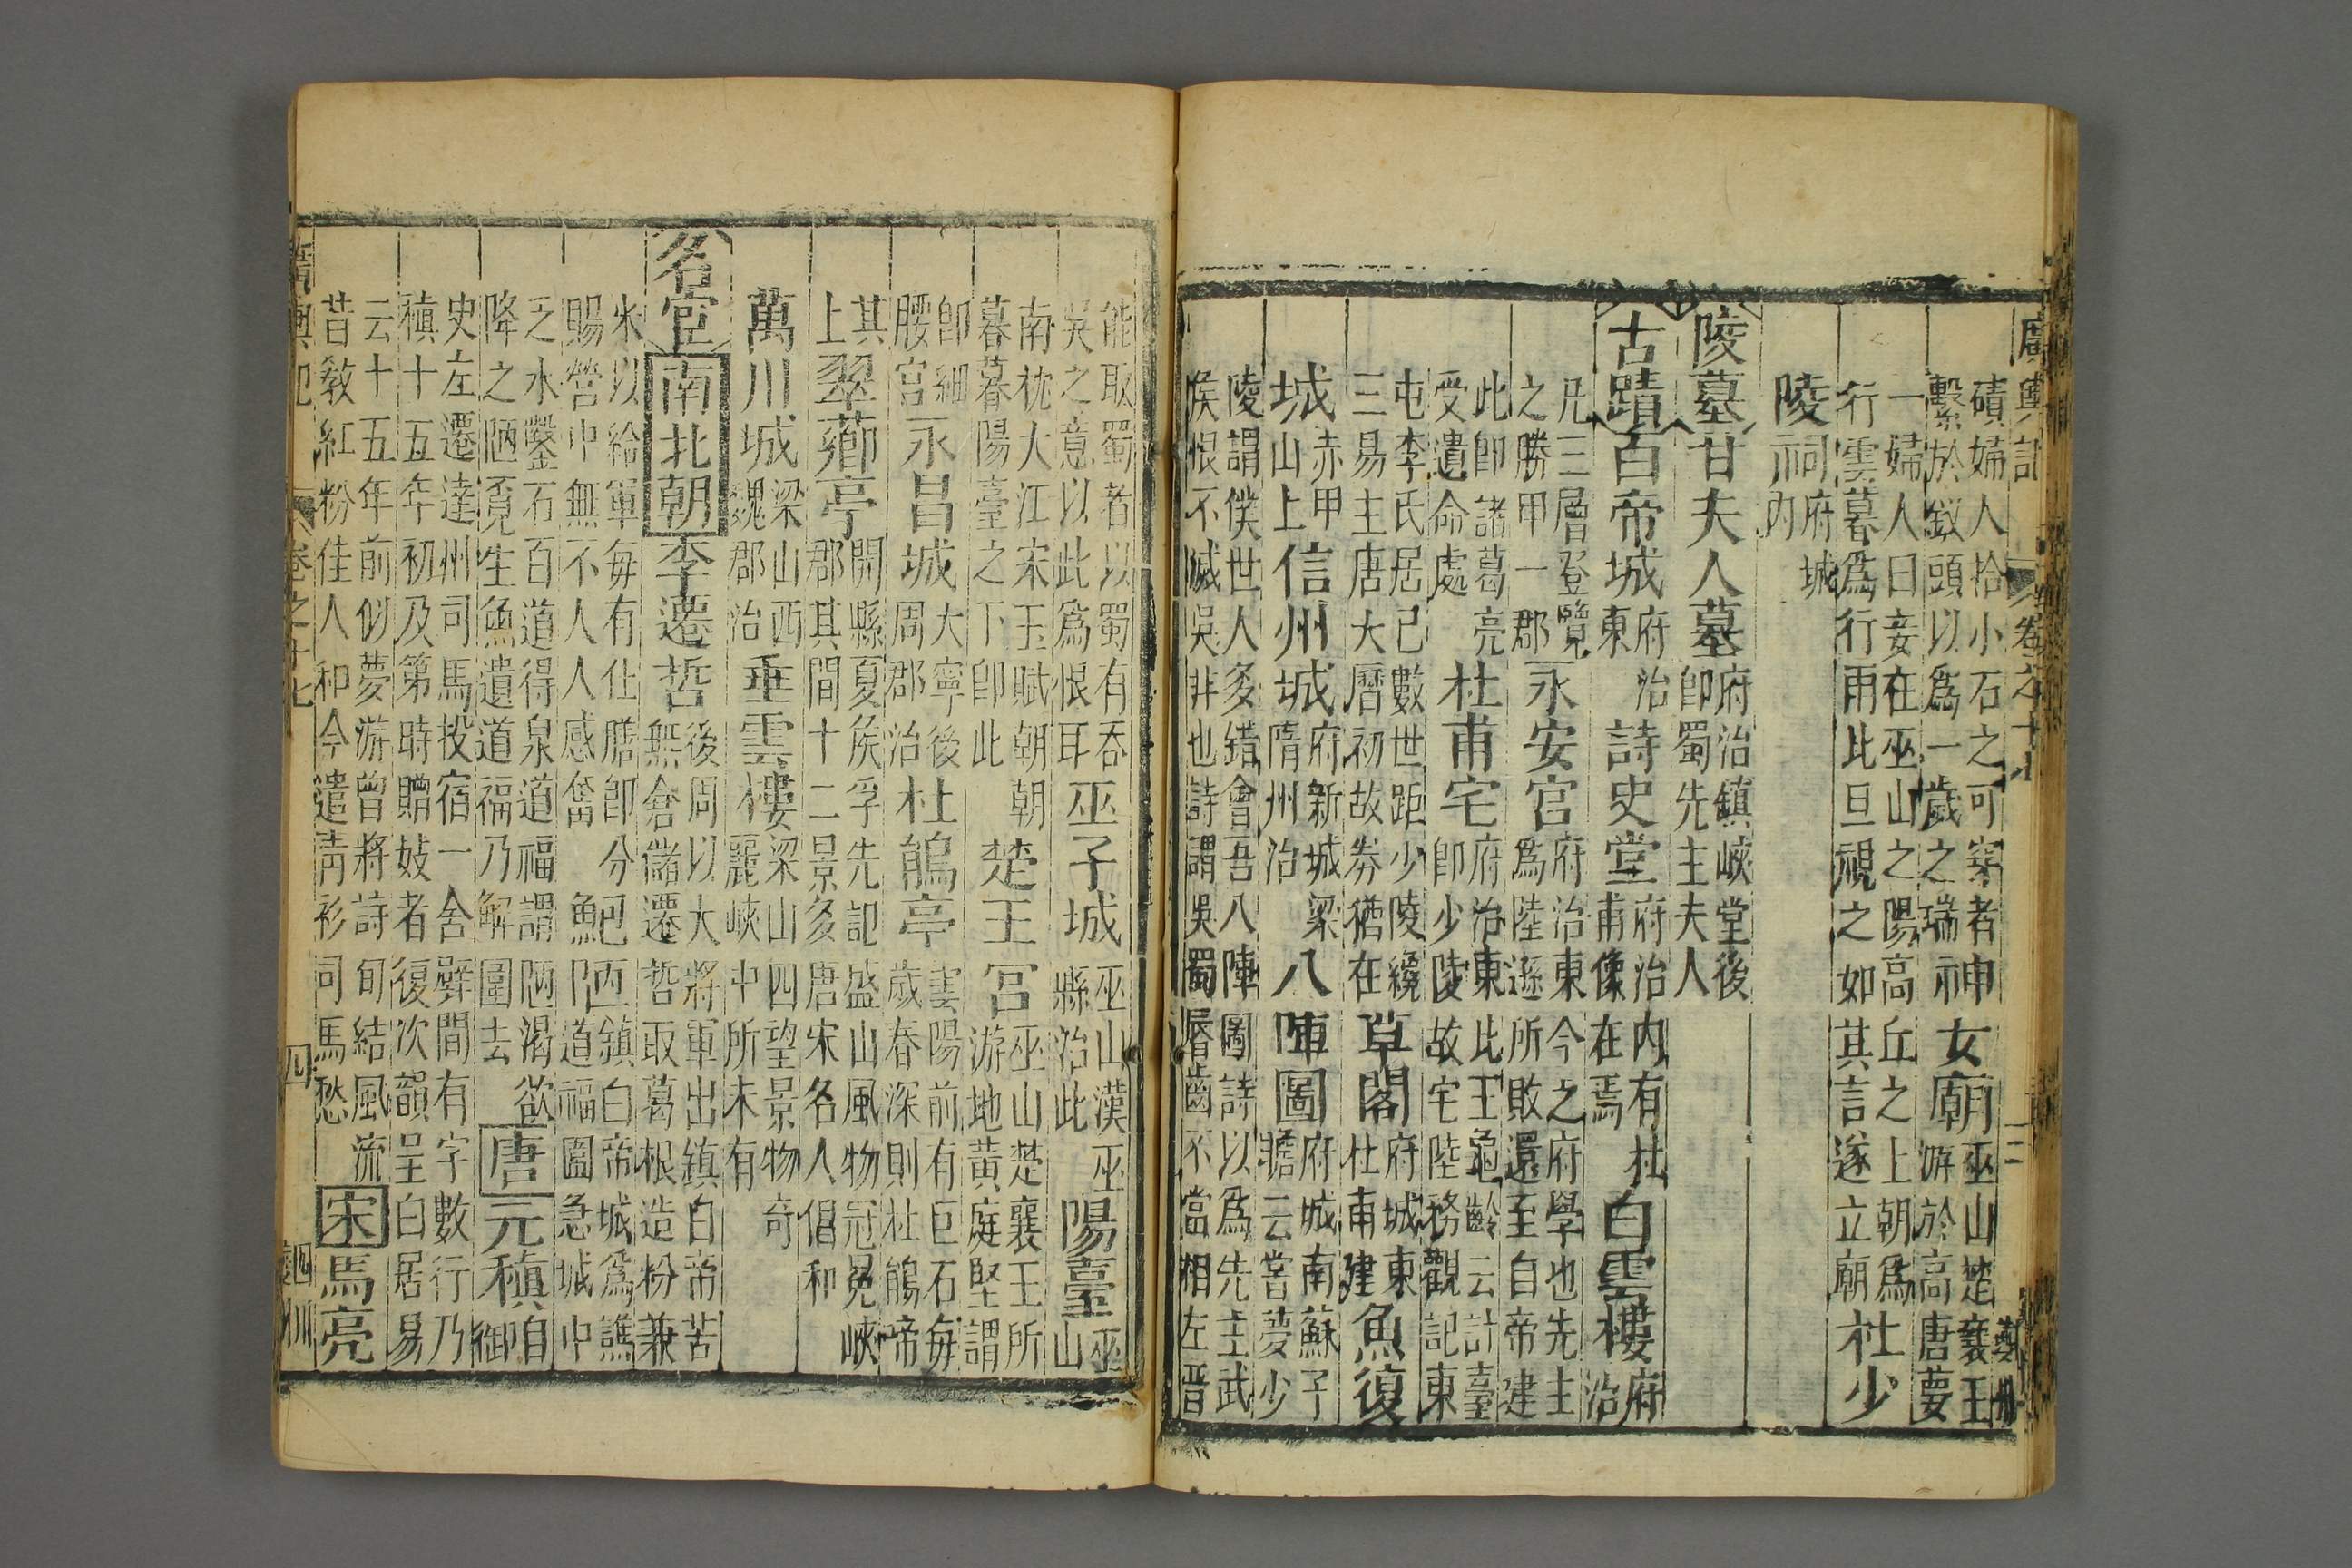 廣輿記 卷之十七
磧婦人拾小石之可穿者神女廟巫山楚襄王
繫於釵頭以爲一歲之瑞 游於高唐夢
一婦人曰妾在巫山之陽高丘之上朝爲
行雲暮爲行雨此旦視之如其言遂立廟杜少
陵祠府城內
陵墓甘夫人墓府治鎮峽堂後即蜀先主夫人
古蹟白帝城府治東詩史堂府治內有杜甫像在焉白雲樓府治
凡三層登覽之勝甲一郡永安宮府治東今之府學也先主爲陸遜所敗還至白帝建
此即諸葛亮受遺命處杜甫宅府治東比王龜齡云計臺即少陵故宅陸務觀記東
屯李氏居已數世距少陵纔三易主唐大曆初故券猶在草閣府城東杜甫建魚復
城赤甲山上信州城府新城梁隋州治八陣圖府城南蘇子瞻云嘗夢少
陵謂僕世人多錯會吾八陣圖詩以爲先主武
侯恨不滅吳非也詩謂吳蜀脣齒不當相左晉
能取蜀者以蜀有吞吳之意以此爲恨耳巫子城巫山漢巫縣治此陽臺巫山
南枕大江宋玉賦朝朝暮暮陽臺之下即此楚王宮巫山楚襄王所游地黃庭堅謂
即細腰宮永昌城大寧後周郡治杜鵑亭雲陽前有巨石每歲春深則杜鵑啼
其上翠薌亭開縣夏侯孚先記盛山風物冠冕峽郡其間十二景多唐宋名人倡和
萬川城梁山西魏郡治垂雲樓梁山四望景物奇麗峽中所未有
名宦南北朝李遷哲後周以大將軍出鎮白帝苦無倉儲遷哲取葛根造粉兼
米以給軍每有仕膳即分賜營中無不人人感奮鮑𨹟鎮白帝城爲譙道福圍急城中
乏水鑿石百道得泉道福謂陋渴欲降之陋覓生魚遺道福乃解圍去唐元稹自御
史左遷達州司馬投宿一舍壁間有字數行乃
稹十五年初及第時贈妓者復次韻呈白居易
云十五年前似夢游曾將詩句結風流
昔教紅粉佳人和今遣靑衫司馬愁宋馬亮
廣輿記 卷之十七 四 四川